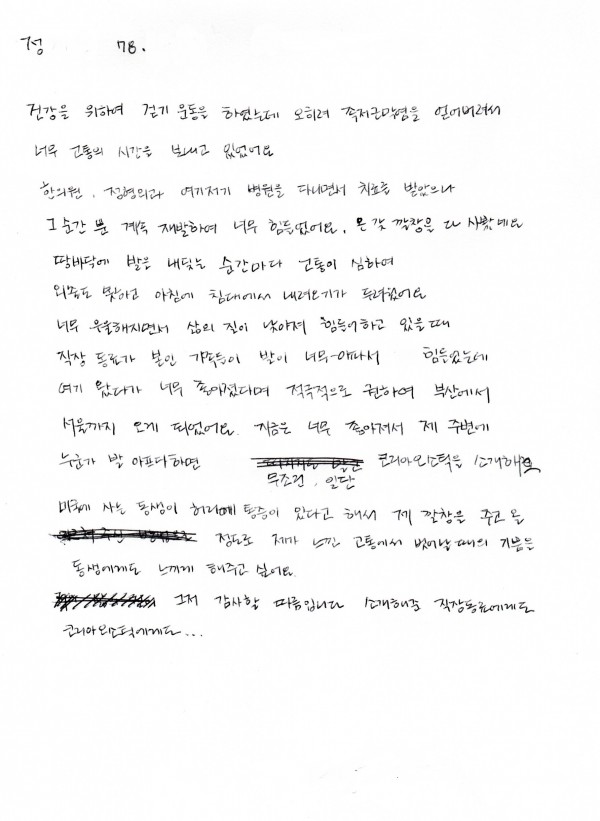 정 78.
건강을 위하여 걷기 운동을 하였는데 오히려 족저근막염을 얻어버려서
너무 고통의 시간을 보내고 있었어요
한의원, 정형외과 여기저기 병원을 다니면서 치료를 받았으나
그 순간 뿐 계속 재발하여 너무 힘들었어요, 온 갖 깔창을 다 사봤네요
땅바닥에 발을 내딛는 순간마다 고통이 심하여
외출도 못하고 아침에 침대에서 내려오기가 두려웠어요
너무 우울해지면서 삶의 질이 낮아져 힘들어하고 있을 때
직장 동료가 본인 가족들이 발이 너무 아파서 힘들었는데
여기 왔다가 너무 좋아졌다며 적극적으로 권하여 부산에서
서울까지 오게 되었어요. 지금은 너무 좋아져서 제 주변에
누군가 발 아프다하면 무조건, 일단 코리아외소틱을 소개해요
미국에 사는 동생이 허리에 통증이 왔다고 해서 제 깔창을 주고 온
정도로 제가 느낀 고통에서 벗어날 때의 기쁨을
동생에게도 느끼게 해주고 싶어요.
그저 감사할 따름입니다 소개해준 직장동료에게도
코리아외소틱에게도...